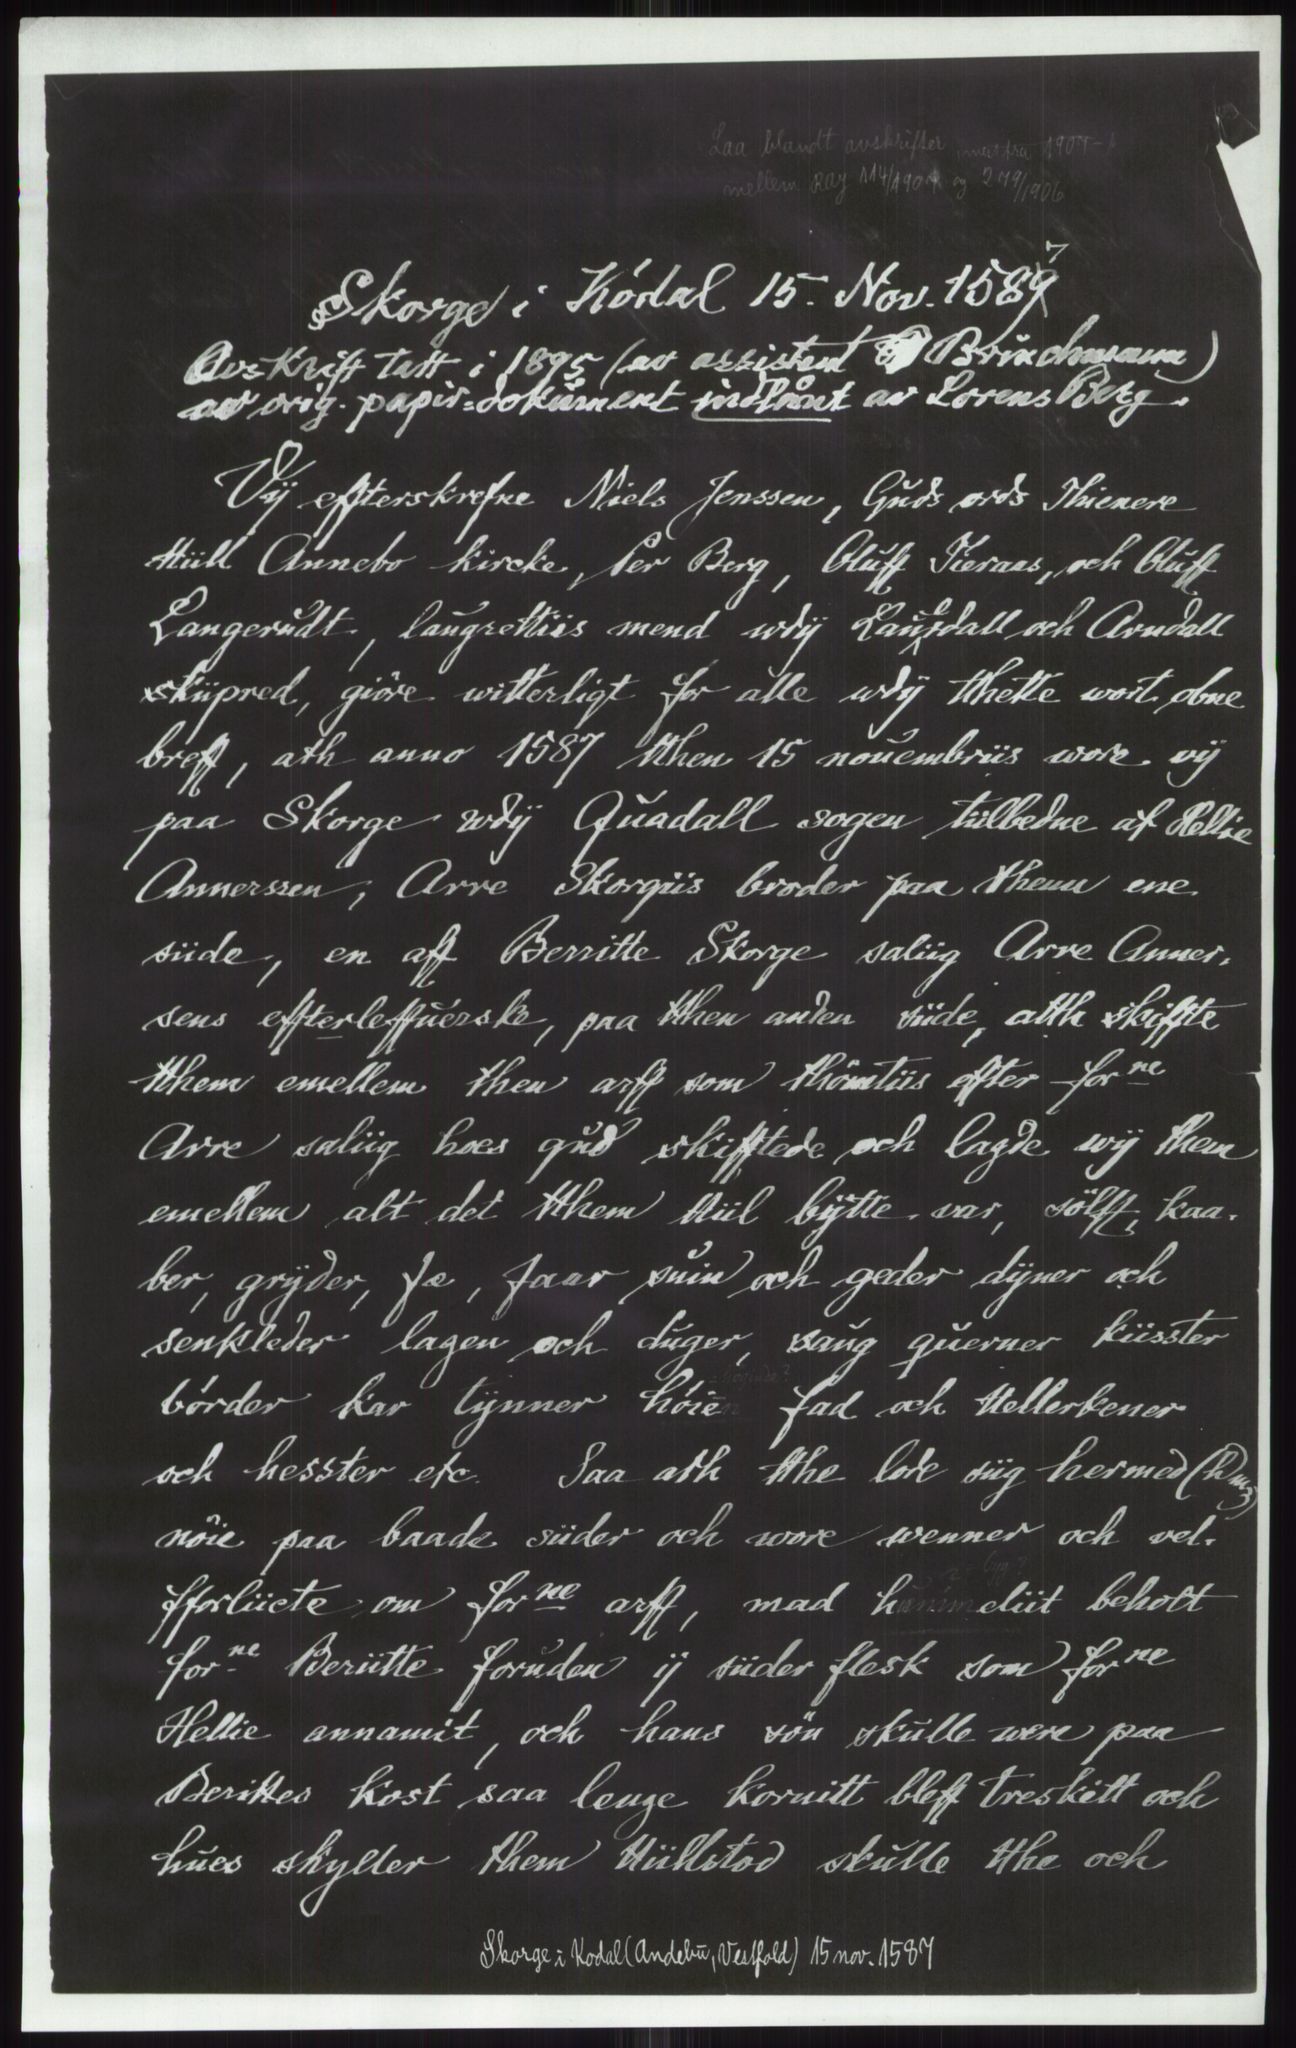 Laa blandt avskrifter fra 1904-
mellem RAJ 114/1904 og 279/1906
Skorge i Kódal 15. Nov. 1587
Avskrift tatt i 1895 (av assistent Brinchmann)
av orig. papir=dokument indlånt av Lorens Berg.
Vÿ effterskrefne Niels Jenssen, Guds ords Thienere
ttiill Annebo kircke, Per Berg, Oluff Tieraas, och Oluff
Langerudt, laugrettiis mend wdÿ Lausdall och Arndall
skiipred, giöre witterligt for alle wdÿ thette wort obne
breff, ath anno 1587 tthen 15 nouembriis wore vÿ
paa Skorge wdÿ Quadall sogen tiilbedne af Hellie
Annerssen, Arre Skorgiis broder paa thenn ene
siide, en aff Berritte Skorge saliig Arre Anner-
sens effterleffuerske, paa tthen anden siide, atth skiffte
tthem emellem then arff som thömtiis efter forne
Arre saliig hoes gud skifftede och lagde wÿ them
emellem alt det tthem ttiil bÿtte var, sölff, kaa-
ber, grÿder, fæ, faar suin och geder dÿner och
senkleder lagen och duger, saug querner kiisster
börder kar tÿnner höie fad och ttellerkener
och hesster etc. Saa ath tthe lode siig hermed
nöie paa baade siider och wore wenner och vel-
fforliicte om forne arff, mad deliit beholt
forne Beriitte foruden ij siider flesk som forne
Hellie annamit, och hans sön skulle were paa
Berittes kost saa lenge kornitt bleff treskitt och
hues skylder them ttiillstod skulle tthe och
Skorge i Kodal (Andebu, Vestfold) 15 nov. 1587